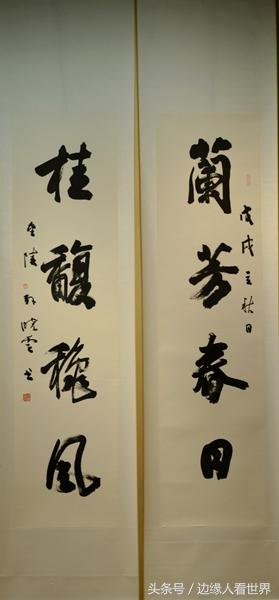 蘭芳春日
戊戌立秋日
桂馥穐風
金陵 曉雲书
头条号／边缘人看世界